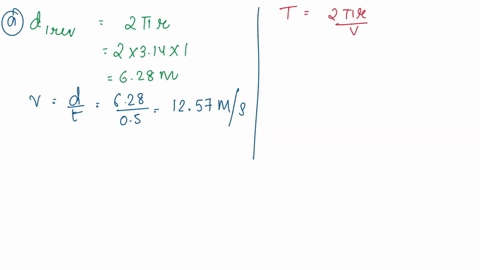 a) d1rev = 2πr
= 2×3.14×1
= 6.28 m
v = d/t = 6.28/0.5 = 12.57 m/s
T = 2πr/v